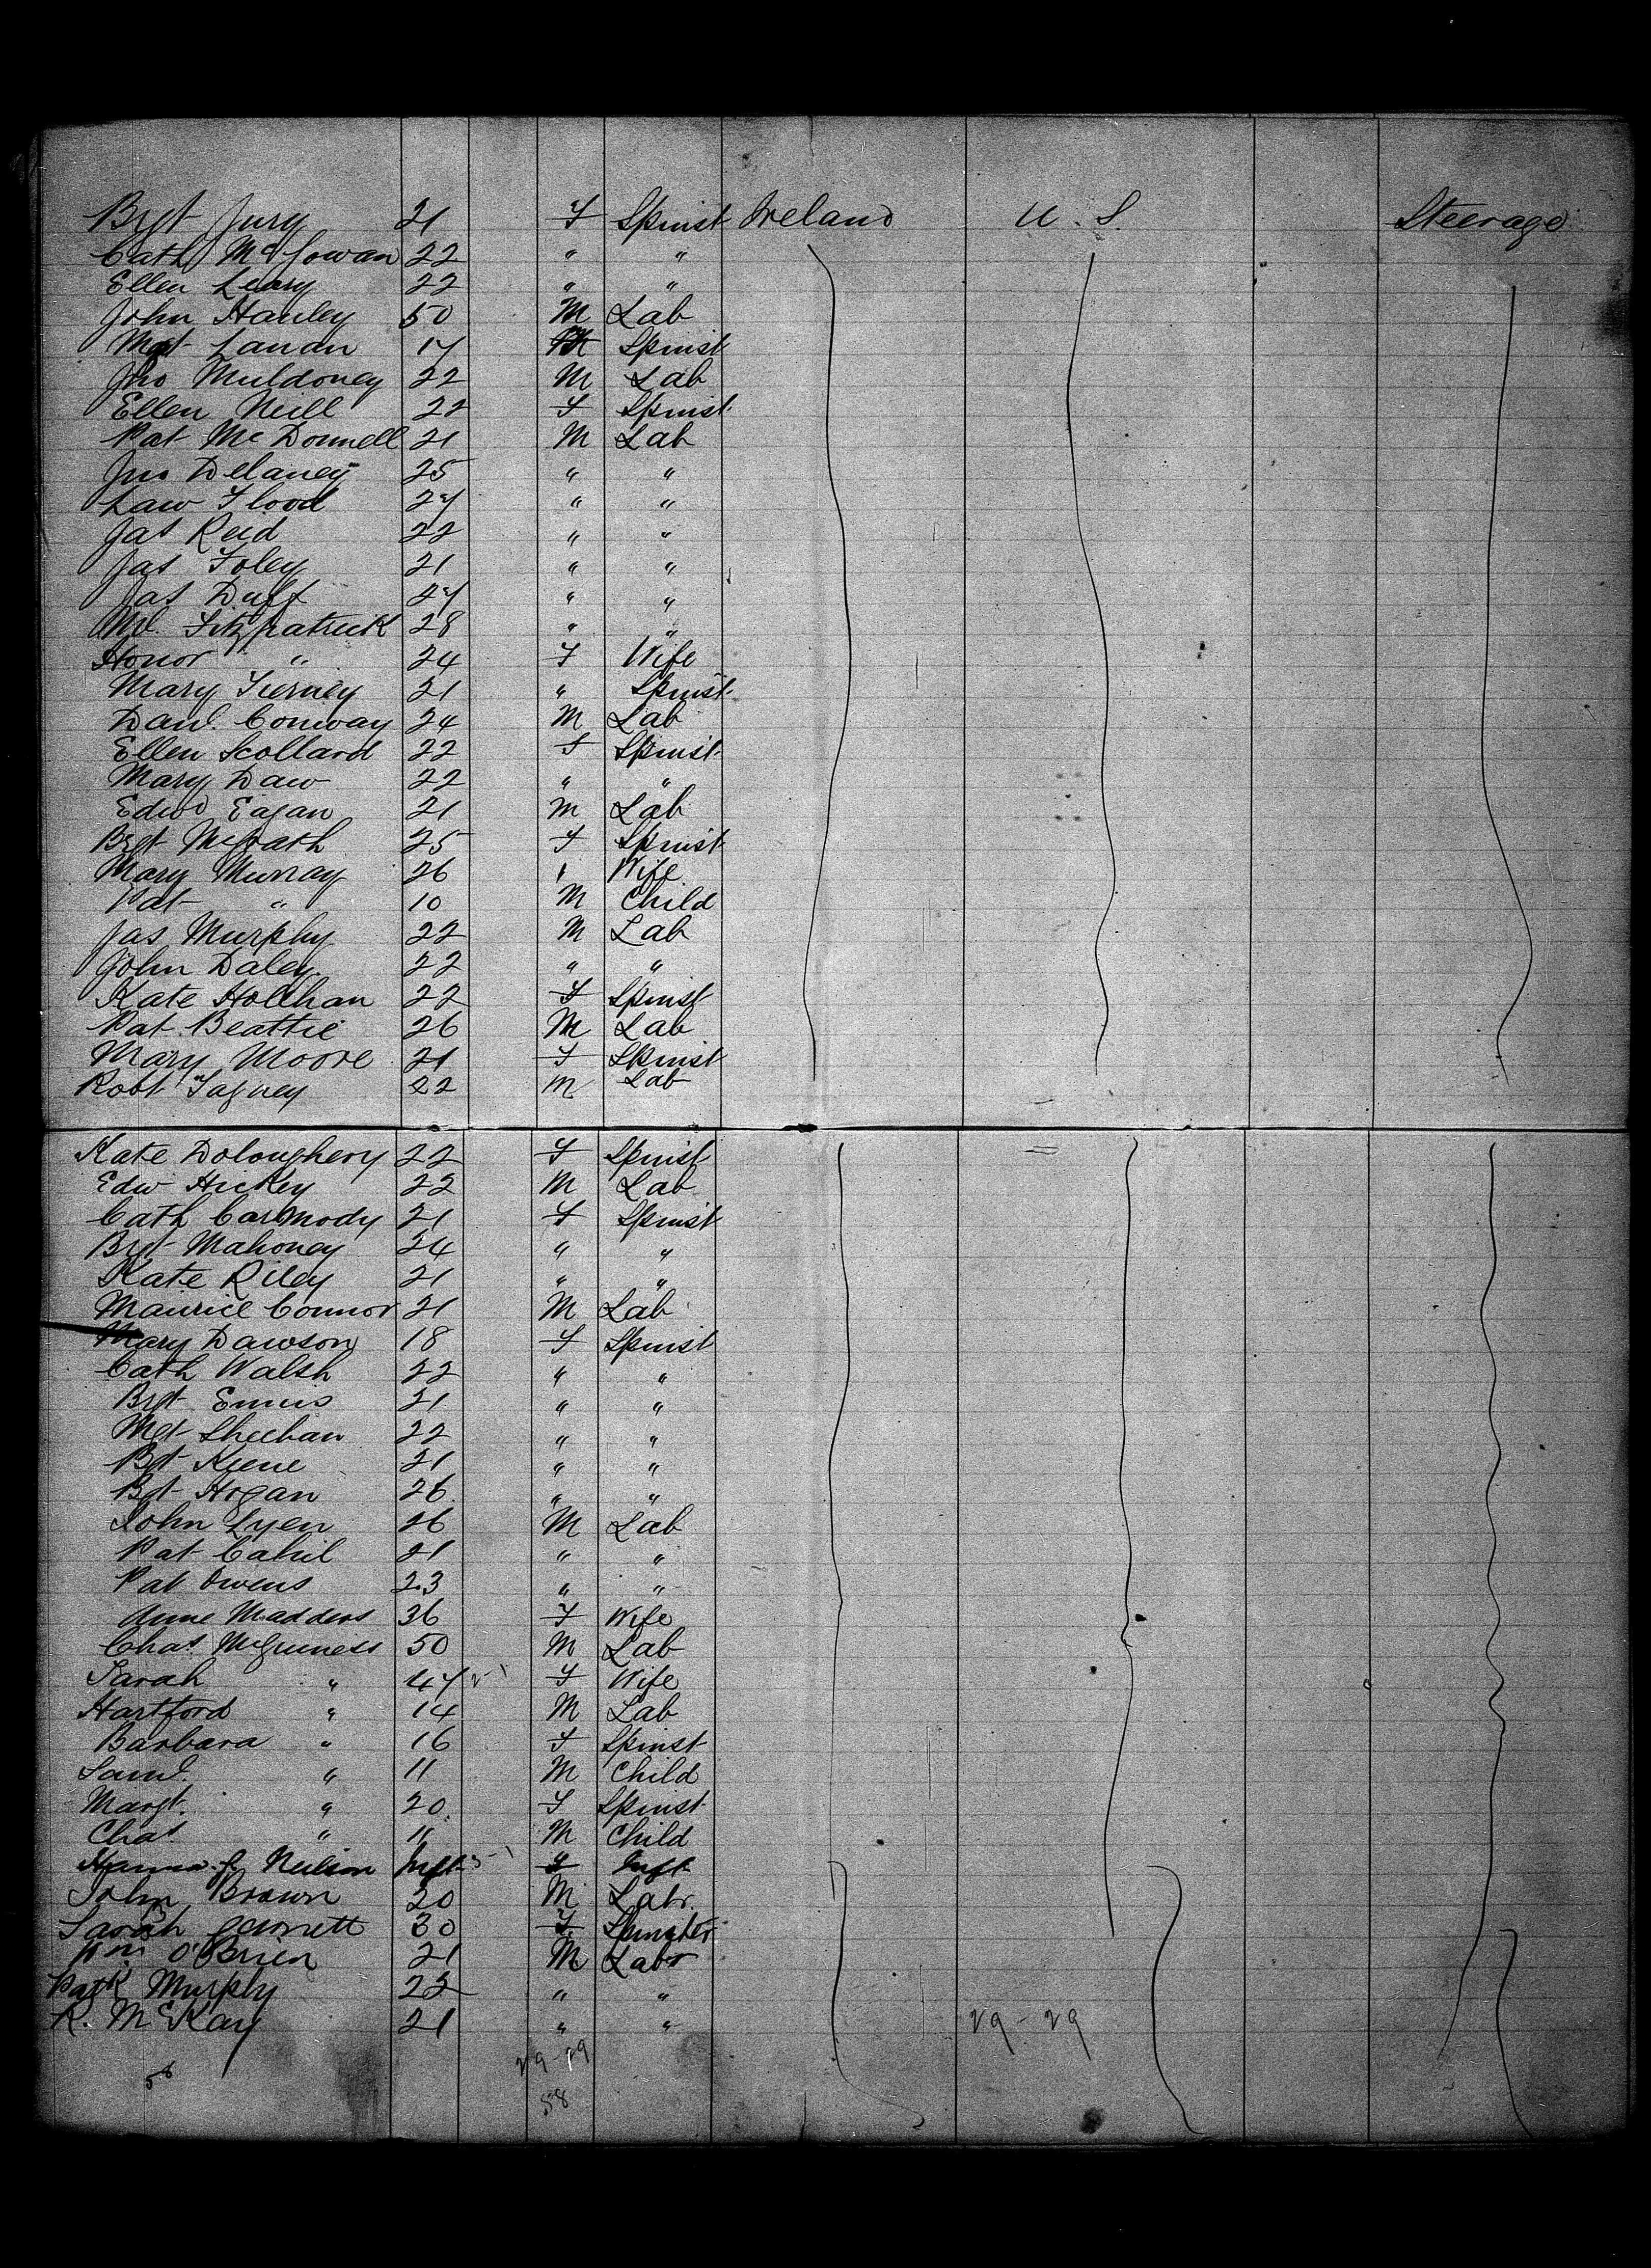 Bgt Jury 21 F Spinst Ireland U.S. Steerage
Cath McGowan 22 " "
Ellen Leary 22 " "
John Hanley 50 M Lab
Mgt Lanan 17 Spinst
Jno Muldoney 22 M Lab
Ellen Neill 22 F Spinst
Pat McDonnell 21 M Lab
Jno Delaney 25 " "
Law Flood 27 " "
Jas Reid 22 " "
Jas Foley 21 " "
Jas Duff 27 " "
Ml. Fitzpatrick 28 " "
Honor " 24 F Wife
Mary Tierney 21 " Spinst
Danl. Conway 24 M Lab
Ellen Scollard 22 F Spinst
Mary Daw 22 " "
Edwd Eagan 21 M Lab
Bgt McGrath 25 F Spinst
Mary Murray 26 " Wife
Pat " 10 M Child
Jas Murphy 22 M Lab
John Daley 22 " "
Kate Holihan 22 F Spinst
Pat Beattie 26 M Lab
Mary Moore 21 F Spinst
Robt Tagney 22 M Lab
Kate Doloughery 22 F Spinst
Edw Hickey 22 M Lab
Cath Carmody 21 F Spinst
Bgt Mahoney 24 " "
Kate Riley 21 " "
Maurice Connor 21 M Lab
Mary Dawson 18 F Spinst
Cath Walsh 22 " "
Bgt Ennis 21 " "
Mgt Sheehan 22 " "
Bgt Keene 21 " "
Bgt Hogan 26 " "
John Lyen 26 M Lab
Pat Cahil 21 " "
Pat Owens 23 " "
Anne Madders 36 F Wife
Chas. McGuiness 50 M Lab
Sarah " 47 F Wife
Hartford " 14 M Lab
Barbara " 16 F Spinst
Saml. " 11 M Child
Margt. " 20 F Spinst
Chas " 11 M Child
Neilson Inft F Inft
John Brown 20 M Labr.
Sarah Garrett 30 F Spinster
Wm O'Brien 21 M Labr
Patk Murphy 22 " "
R. McKay 21 " " 29-29
29-29
58
58